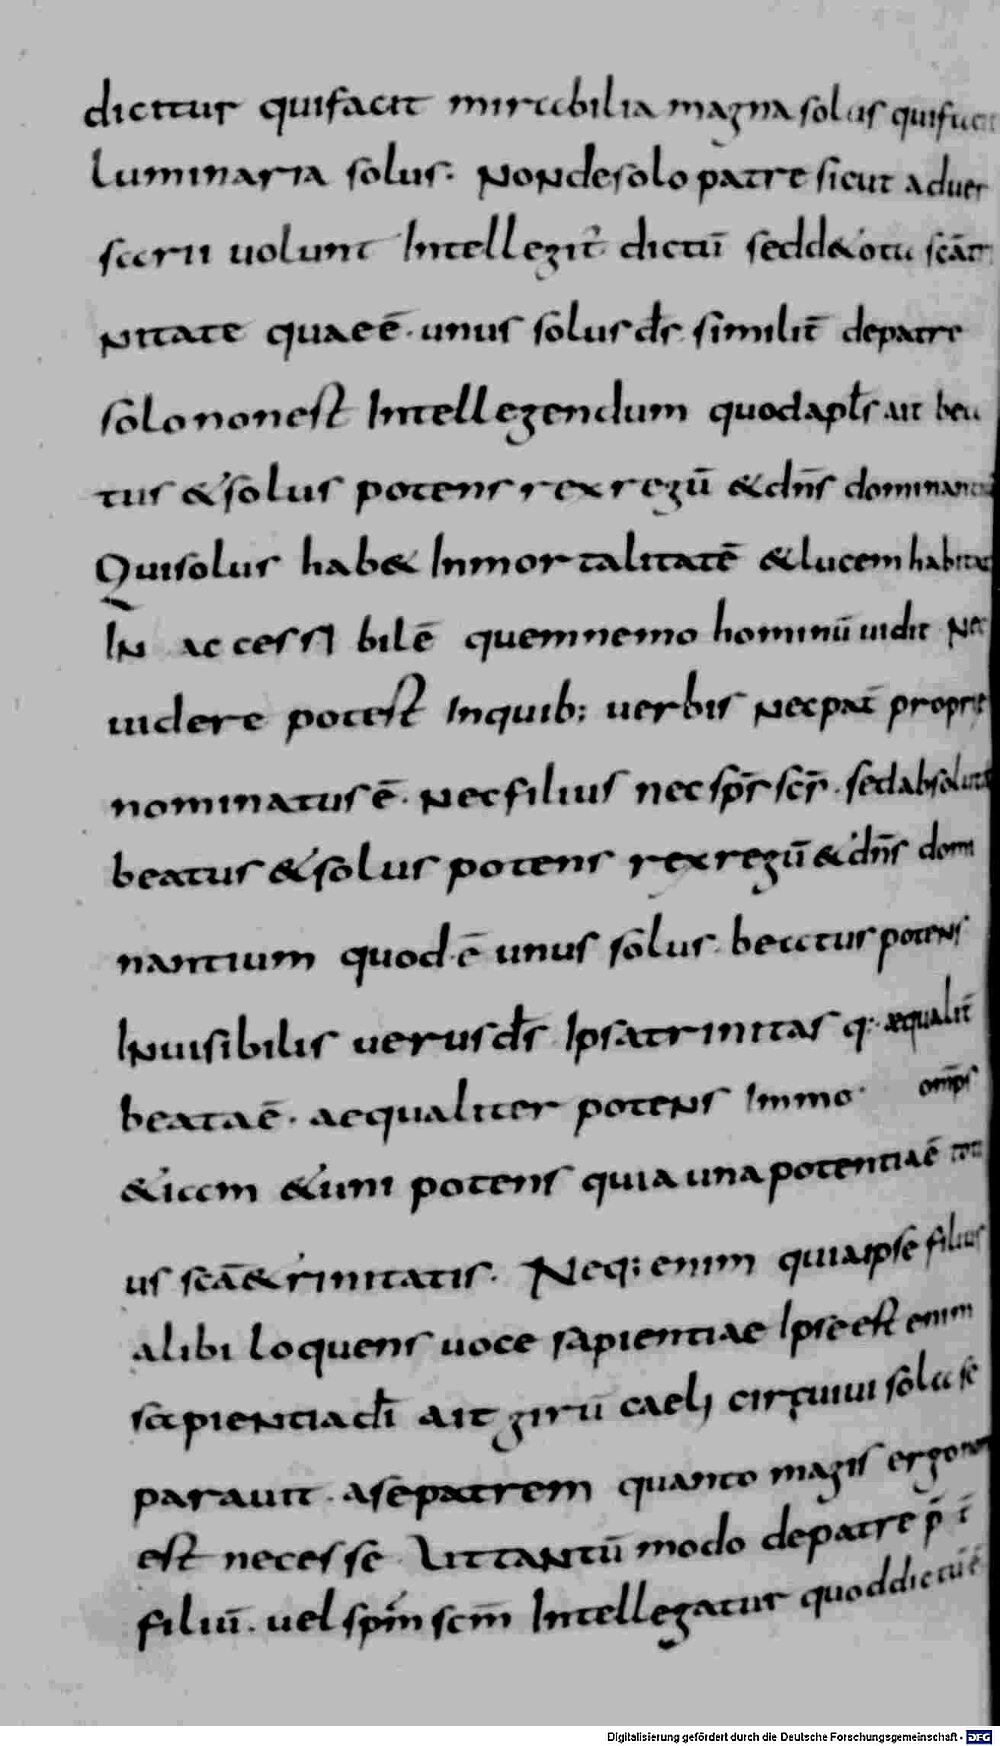 dicitur quifacit mirabilia magna solus quifacit
luminaria solus. Nondesolo patre sicut aduer
sarii uolunt Intellegit̄ dictū sedd&ota scāt
Nitate quaeē. unus solus dr̄s. similit̄ depatre
solo nonest Intellegendum quodapl̄s ait bea
tus &solus potens rex regū &dn̄s dominantiū
Quisolus hab& Inmortalitatē &lucem habitat
IN accessi bilē quemnemo hominū uidit Nec
uidere potest Inquib; uerbis Necpat̄ proprie
nominatus ē. Necfilius nec sp̄s sc̄s. sedabsolute
beatus &solus potens rex regū &dn̄s domi
nantium quod ē unus solus. beatus potens
INuisibilis uerus ds̄ Ipsatrinitas q; aequalit̄
beataē. aequaliter potens Immo. omp̄s
&iam &uni potens quia una potentiaē toti
us scā&rinitatis. Neq; enim quiaipse filius
alibi loquens uoce sapientiae Ipse est enim
sapientia dī ait girū caeli circuiui sola se
parauit. asepatrem quanto magis ergonon
est necesse Uttantū modo depatre p̄ t̄
filiū. uel spm̄ scm̄ Intellegatur quoddictūē